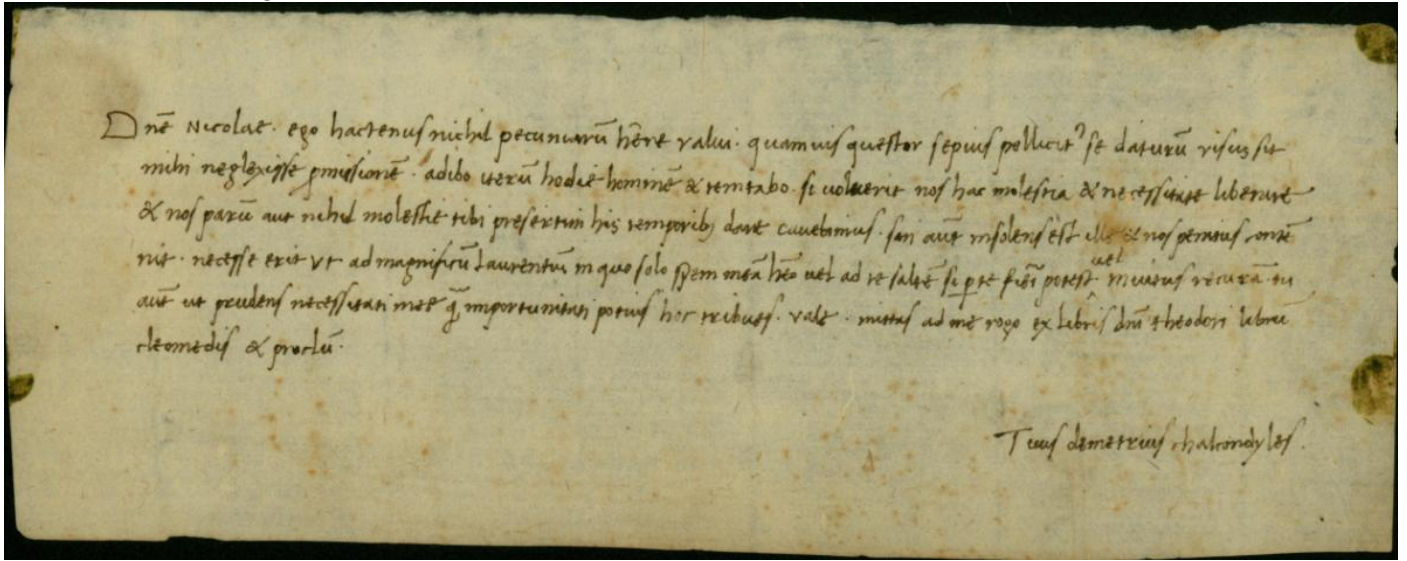 Dnē Nicolae. ego hactenus nichil pecuniarū hēre valui. quamuis questor sepius pollicit' se daturū visus sit
mihi neglexisse pmissionē. adibo iterū hodie hominē & temtabo. si voluerit nos hac molestia & necessitate liberare
& nos parū aut nihil molestie tibi presertim his temporib; dare curabimus. sin aūt insolens est ille & nos penitus contē
nit. necesse erit vt ad magnificū Laurentiū in quo solo spem meā hēo vel ad te saltē si p te fieri potest vel recurā. tu
aūt ut prudens necessitati mee q̄ importunitati potius hoc tribues. vale. mittas ad me rogo ex libris dnī theodori librū
cleomedis & proclū.
Tuus demetrius chalcondyles.